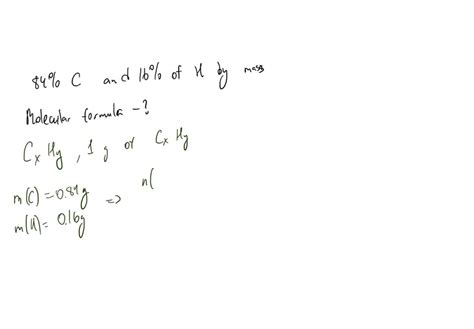 84% C and 16% of H by mass
Molecular formula - ?
CxHy, 1 g of CxHy
m(C) = 0.84g => n(
m(H) = 0.16g